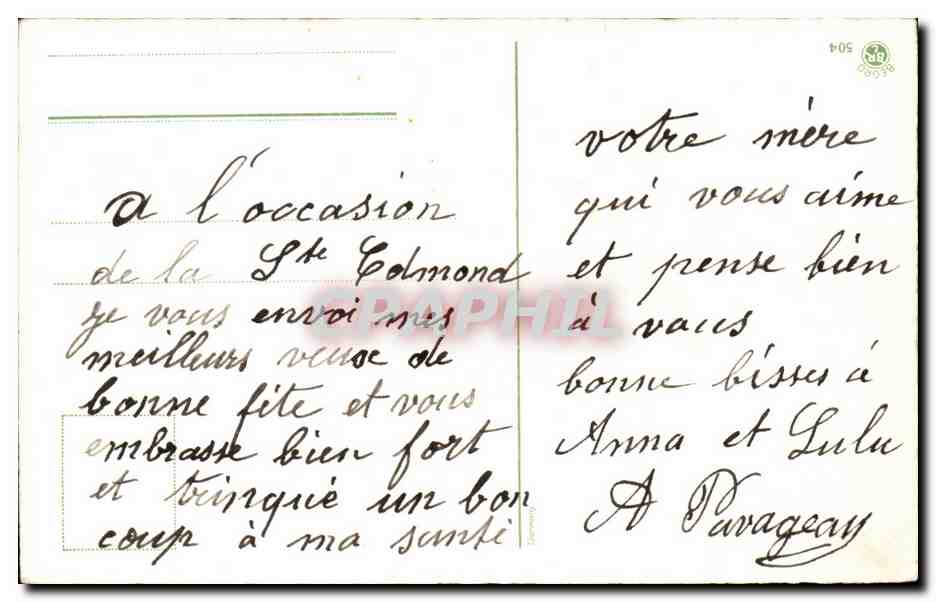 a l'occasion
de la Ste Edmond
je vous envoi mes
meilleurs veux de
bonne fête et vous
embrasse bien fort
et trinqué un bon
coup à ma santé
votre mère
qui vous aime
et pense bien
à vous
bonne bisses à
Anna et Lulu
A Pavageau
504
BEGRO
BR
Germany
GRAPHIL